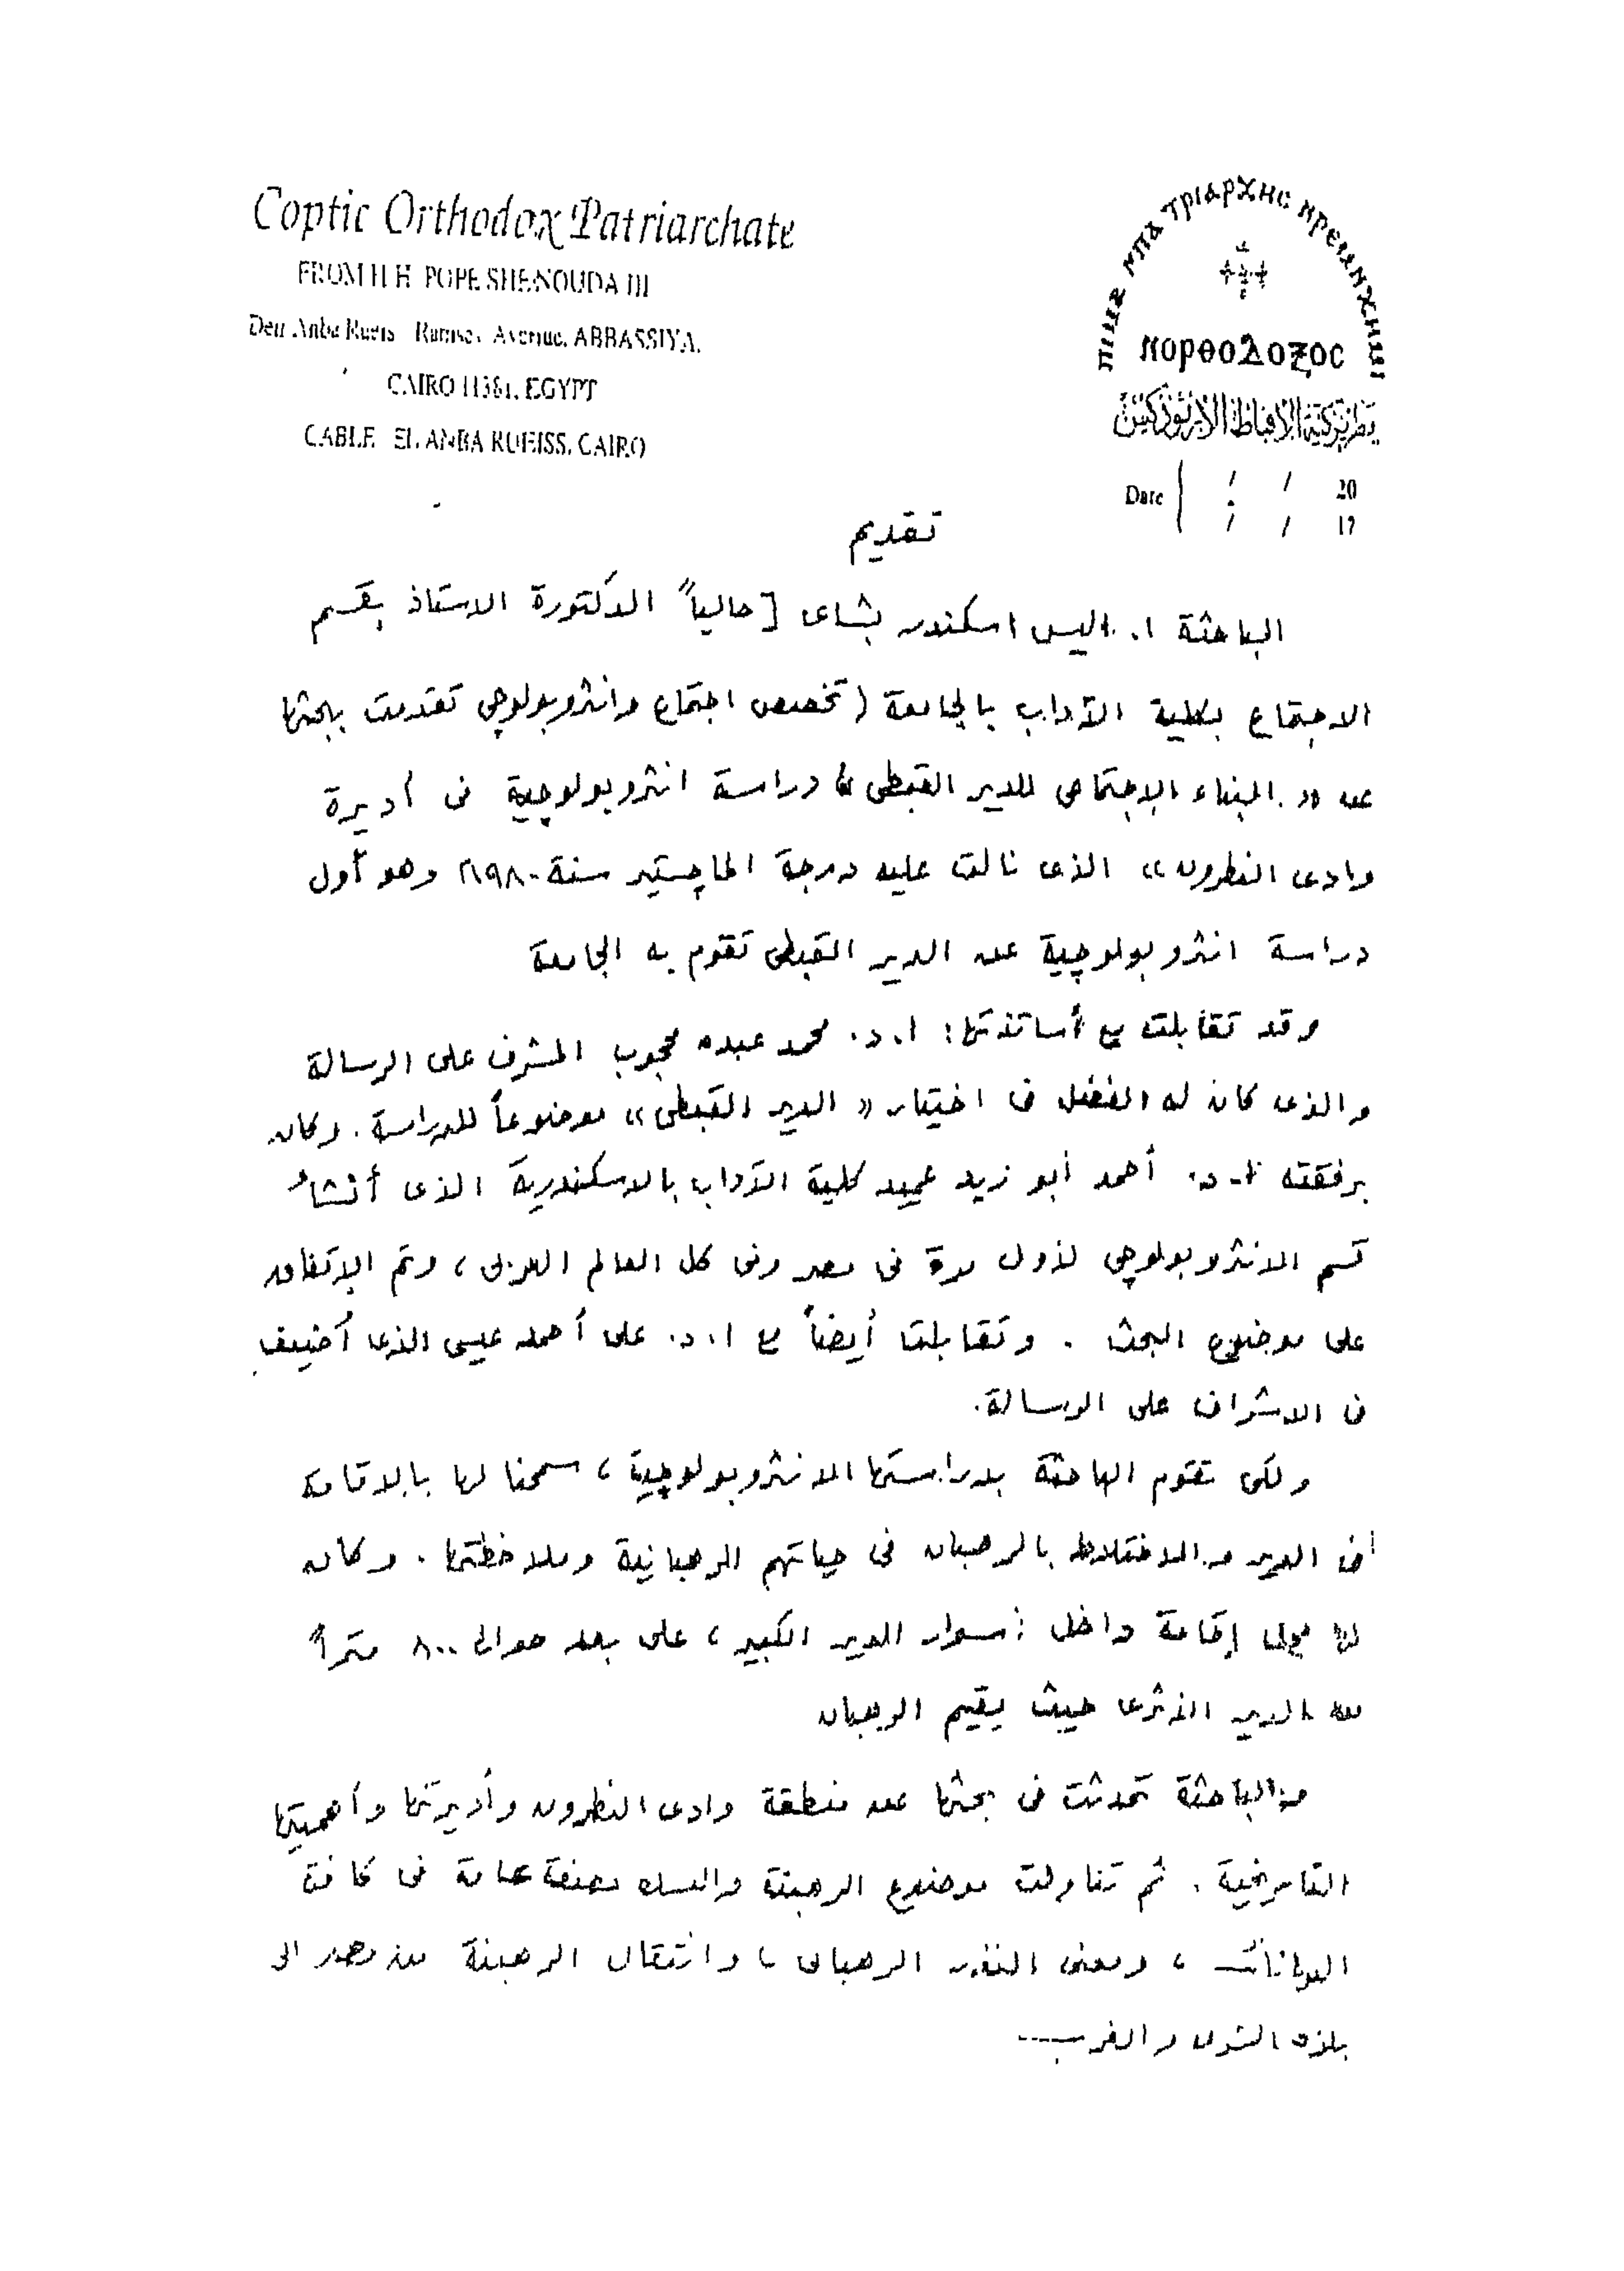 Coptic Orthodox Patriarchate
FROM H H POPE SHENOUDA III
Deir Anba Rueis Ramses Avenue, ABBASSIYA,
CAIRO 11381, EGYPT
CABLE EL ANBA RUEISS, CAIRO
ⲛⲟⲣⲑⲟⲇⲟⲝⲟⲥ
بطريركية الاقباط الارثوذكس
Date / / 20
/ / 19
تقديم
الباحثة ا. اليس اسكندر بشاى [حالياً الدكتورة الاستاذ بقسم
الاجتماع بكلية الآداب بالجامعة (تخصص اجتماع وانثروبولوجى تقدمت ببحثها
عن « البناء الاجتماعى للدير القبطى » دراسة انثروبولوجية فى أديرة
وادى النطرون » الذى نالت عليه درجة الماچستير سنة ١٩٨٠م وهو أول
دراسة انثروبولوچية عن الدير القبطى تقوم به الجامعة
وقد تقابلت مع أساتذتها: ا. د. محمد عبده محجوب المشرف على الرسالة
والذى كان له الفضل فى اختيار « الدير القبطى » موضوعاً للدراسة. وكان
برفقته ا. د. أحمد أبو زيد عميد كلية الآداب بالاسكندرية الذى أنشأ
قسم الانثروبولوچى لأول مرة فى مصر وفى كل العالم العربى، وتم الاتفاق
على موضوع البحث . وتقابلت أيضاً مع ا. د. على أحمد عيسى الذى أضيف
فى الاشراف على الرسالة.
ولكى تقوم الباحثة بدراستها الانثروبولوچية، سمحنا لها بالاقامة
فى الدير والاختلاط بالرهبان فى حياتهم الرهبانية وملاحظتها . وكان
لها إقامة داخل أسوار الدير الكبير، على بعد حوالى ٨٠٠ متراً
من الدير الأثرى حيث يقيم الرهبان
والباحثة تحدثت فى بحثها عن منطقة وادى النطرون وأديرتها وأهميتها
التاريخية . ثم تناولت موضوع الرهبنة والنسك بصفة عامة فى كافة
الديانات ، ومعنى النذر الرهبانى ، وانتقال الرهبنة من مصر الى
بلاد الشرق والغرب----